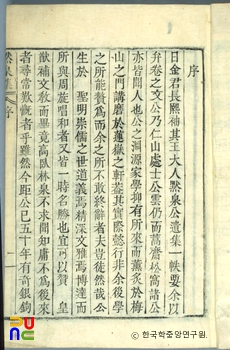 序
日金君長熙袖其王大人黙泉公遺集一帙要余以
弁卷之文公乃仁山處士公雲仍而蒿齋松窩諸公
亦皆聞人也公之淵源家學抑有所來而薰炙於梅
山之門講磨於蓮嶽之軒蓋其實際懿行非余後學
之所能贅爲而余之所不敢終辭者夫豈徒然哉公
生於 聖明崇儒之世道義焉滋焉博達而
所與周旋唱和者又皆一時名勝也宜可以贊 皇
猷補文敎而畢竟高臥林泉不求聞知庸不爲後來
者尋常歎 者乎雖然今距公已五十年有奇銀鉤
泉集 序
ⓒ 한국학중앙연구원.